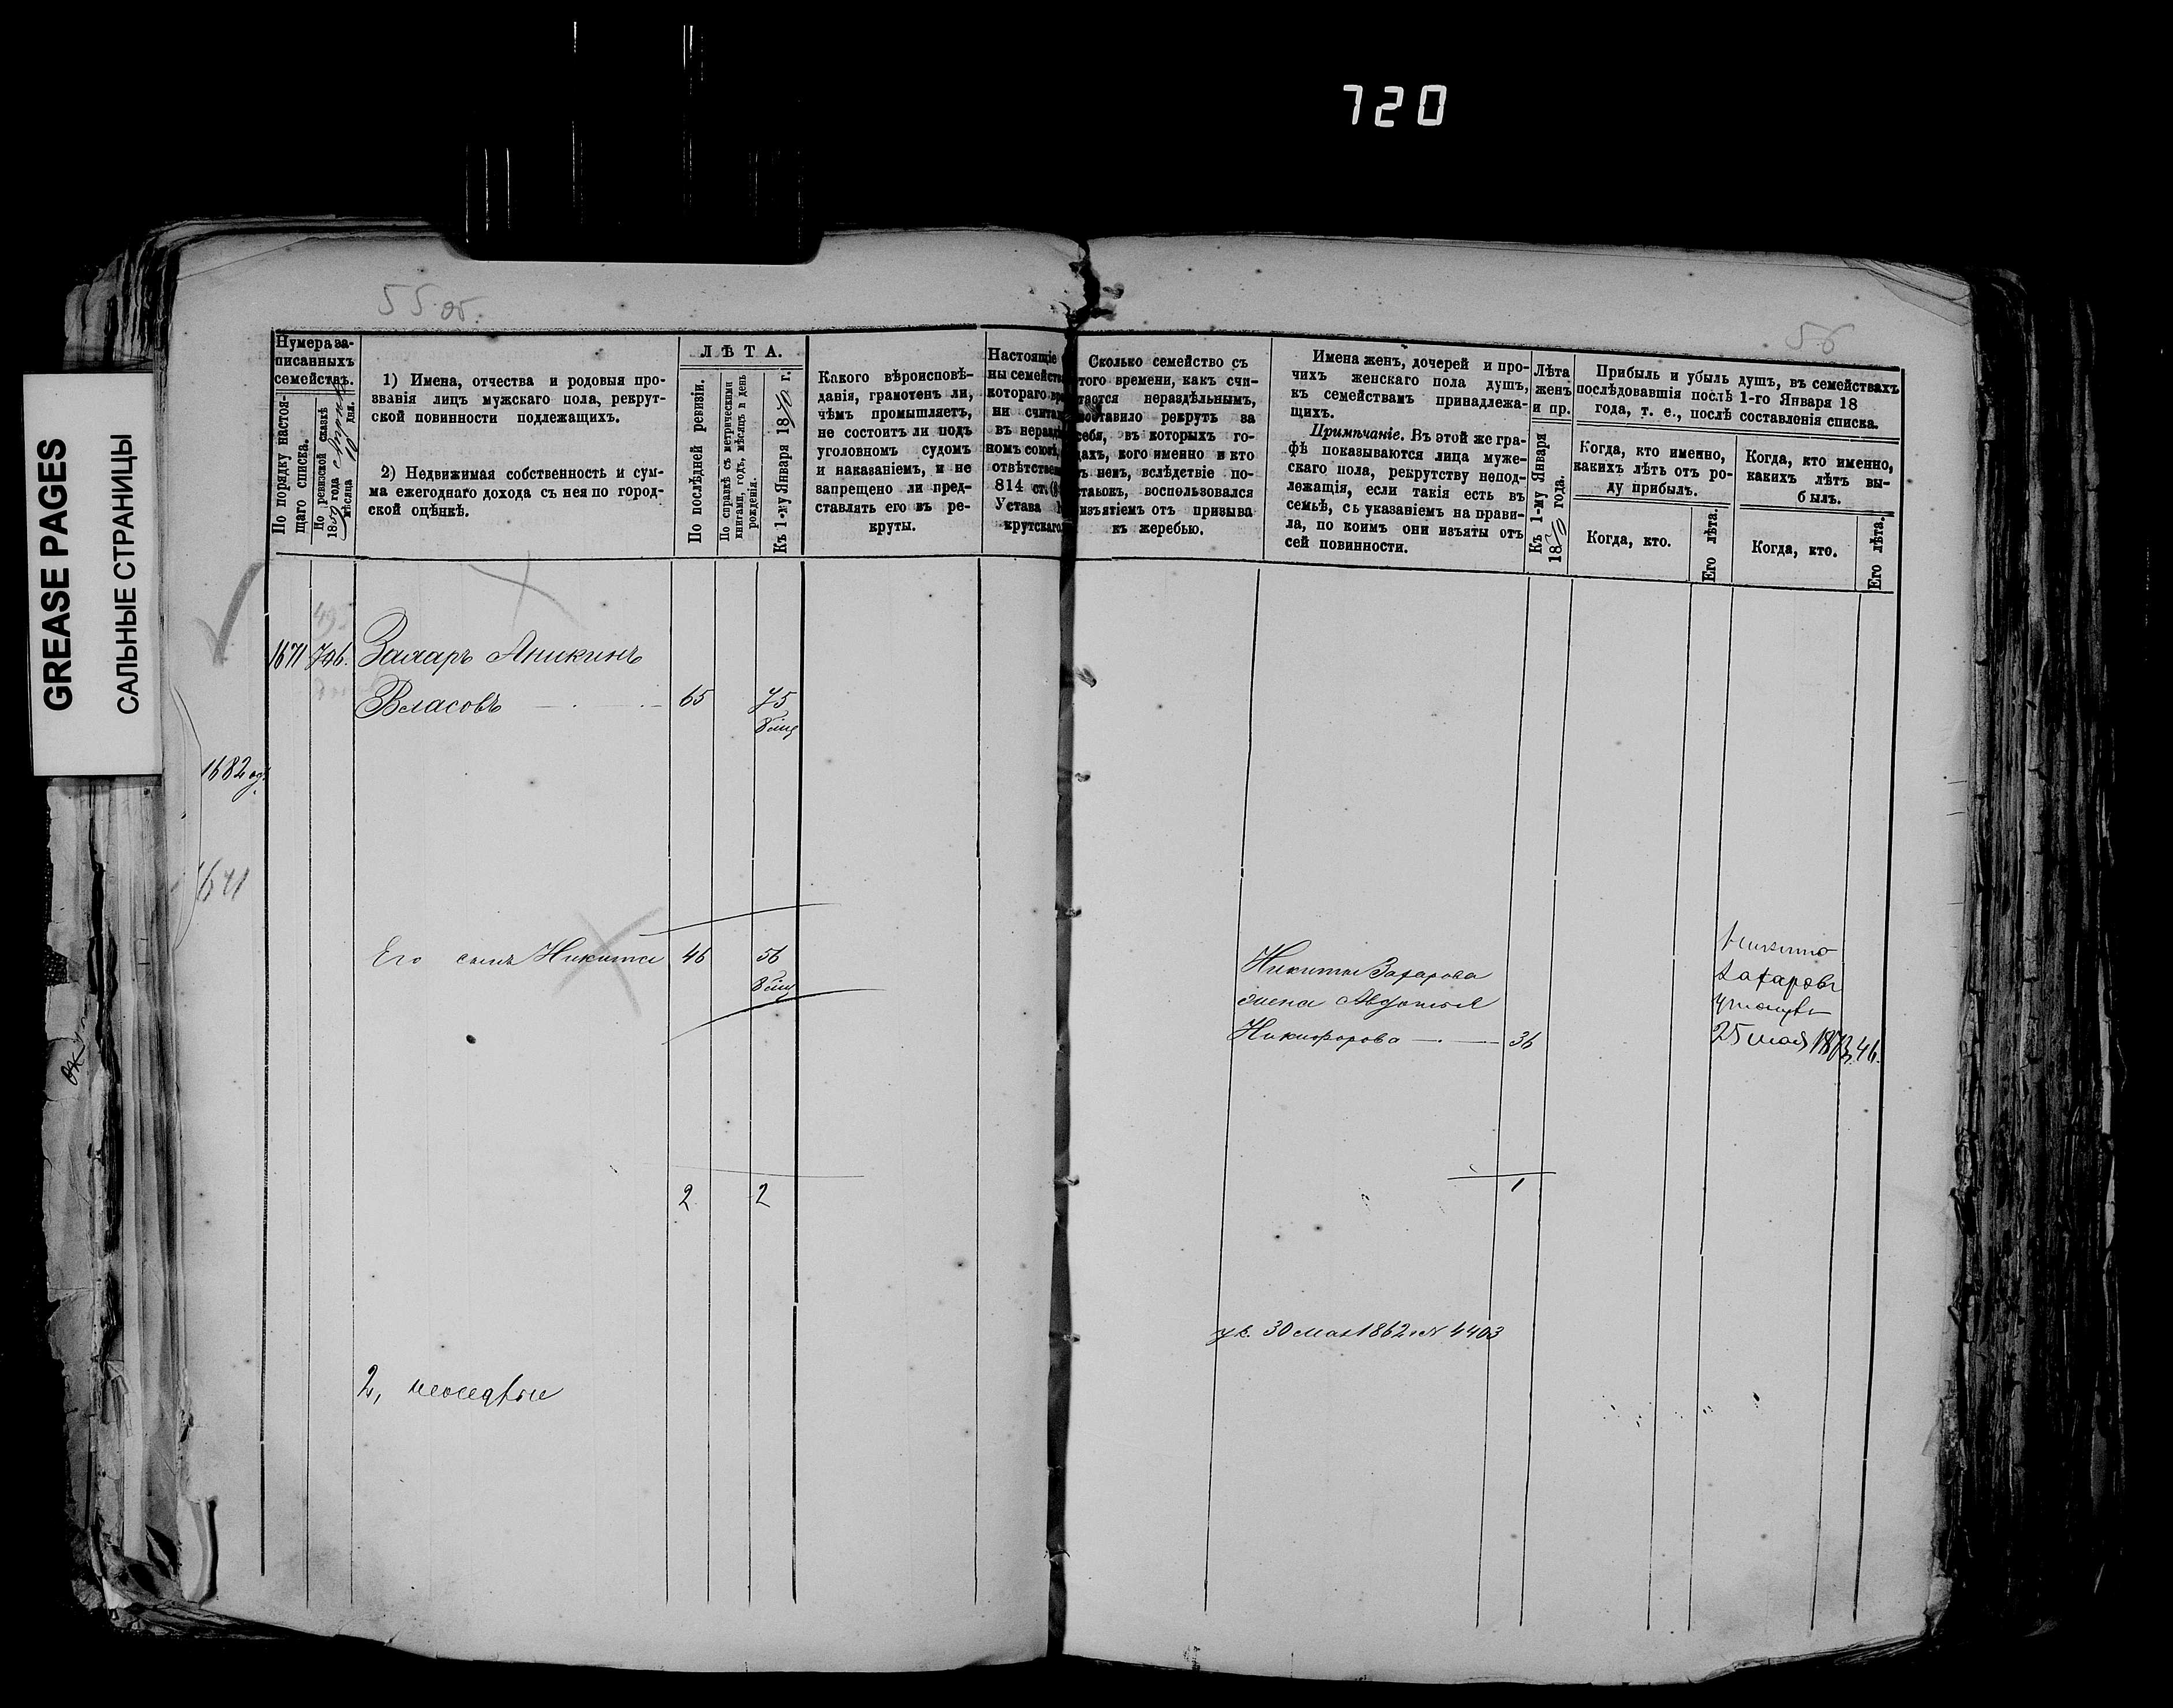 720
GREASE PAGES
САЛЬНЫЕ СТРАНИЦЫ
55 об.
56
Нумера за-
писанныхъ
семействъ.
По порядку настоя-
щаго списка.
По ревизской сказкѣ
18 года
мѣсяца 10 дня.
1) Имена, отчества и родовыя про-
званія лицъ мужскаго пола, рекрут-
ской повинности подлежащихъ.
2) Недвижимая собственность и сум-
ма ежегоднаго дохода съ нея по город-
ской оцѣнкѣ.
ЛѢТА.
По послѣдней ревизіи.
По справкѣ съ метрическими
книгами, годъ, мѣсяцъ и день
рожденія.
Къ 1-му Января 1870 г.
Какого вѣроисповѣ-
данія, грамотенъ ли,
чѣмъ промышляетъ,
не состоитъ ли подъ
уголовномъ судомъ
и наказаніемъ, и не
запрещено ли пред-
ставлять его въ ре-
круты.
Настоящіе
ны семейства
котораго вре
ни считае
въ неразд
номъ союзѣ,
отвѣтствен
814 ст.
Устава
крутскаго.
Сколько семейство съ
того времени, какъ счи-
тается нераздѣльнымъ,
поставило рекрутъ за
себя, въ которыхъ го-
дахъ, кого именно и кто
въ немъ, вслѣдствіе по-
стаьокъ, воспользовался
изъятіемъ отъ призыва
къ жеребью.
Имена женъ, дочерей и про-
чихъ женскаго пола душъ,
къ семействамъ принадлежа-
щихъ.
Примѣчаніе. Въ этой же гра-
фѣ показываются лица муже-
скаго пола, рекрутству непод-
лежащія, если такія есть въ
семьѣ, съ указаніемъ на прави-
ла, по коимъ они изъяты отъ
сей повинности.
Лѣта
женъ
и пр.
Къ 1-му Января
1870 года.
Прибыль и убыль душъ, въ семействахъ
послѣдовавшія послѣ 1-го Января 18
года, т. е., послѣ составленія списка.
Когда, кто именно,
какихъ лѣтъ отъ ро-
ду прибылъ.
Когда, кто.
Его лѣта.
Когда, кто именно,
какихъ лѣтъ вы-
былъ.
Когда, кто.
Его лѣта.
49
1671 796. Захаръ Аникинъ
Власовъ 65 75
1682
1671
Его сынъ Никита 46 56
Никиты Захарова
жена Авдотья
Никифорова 36
Никита
Захаровъ
25 мая 1873 46.
2 2
1
ук. 30 мая 1862 № 4403
2,